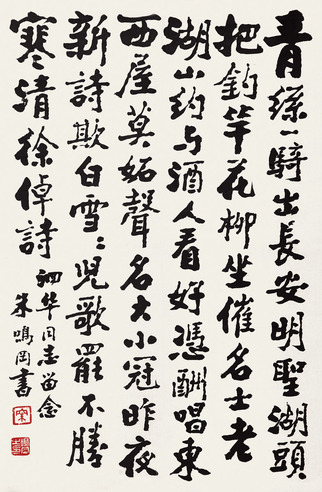 青絲一騎出長安明聖湖頭
把釣竿花柳坐催名士老
湖山約与酒人看好憑酬唱東
西屋莫妬聲名大小冠昨夜
新詩欺白雪々兒歌罷不勝
寒清徐倬詩
泗华同志留念
朱鳴岡書